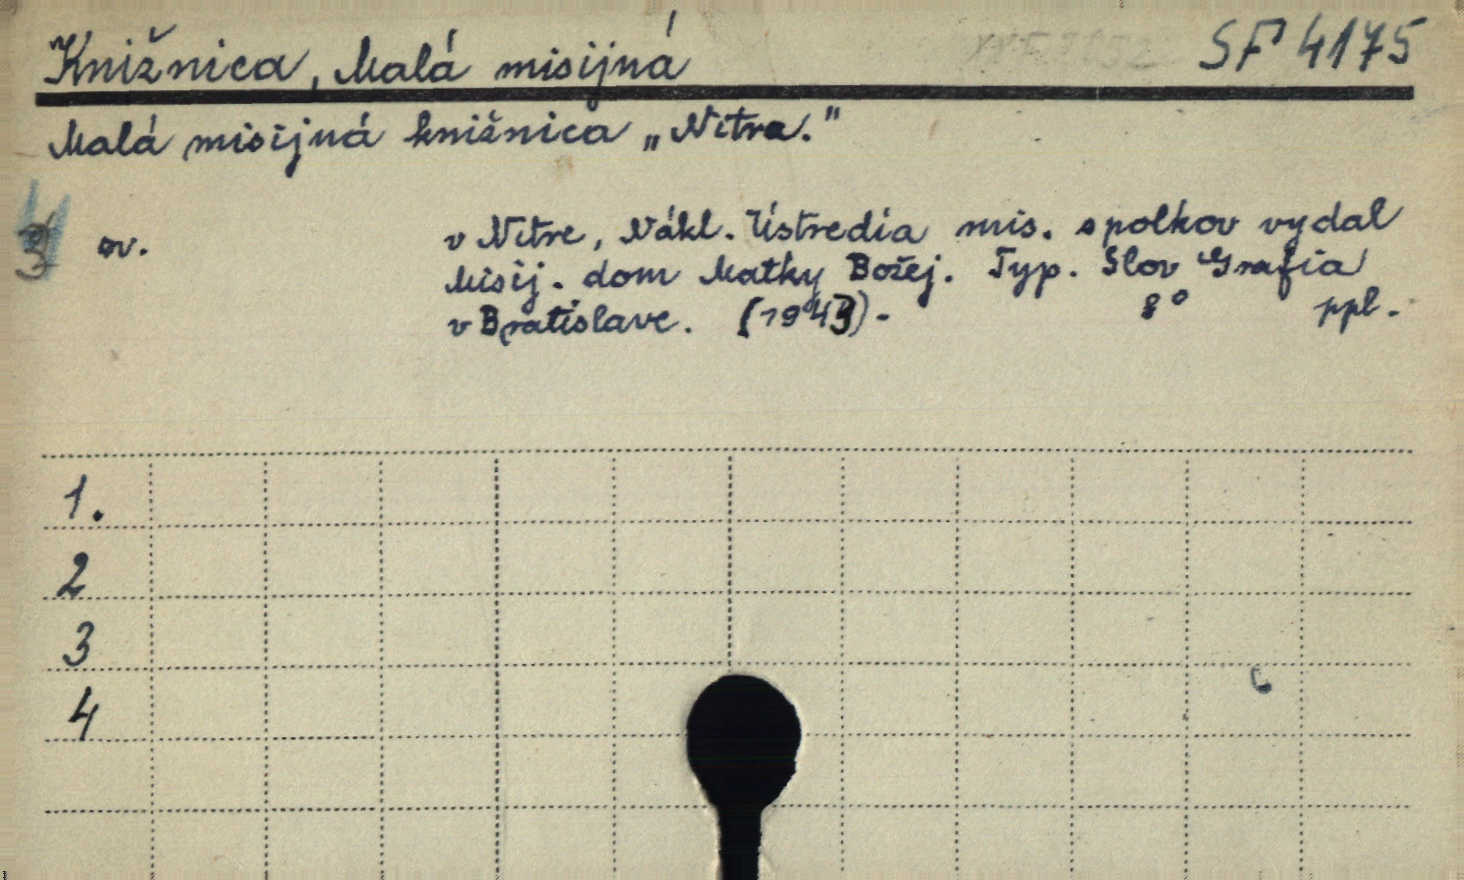 Knižnica, Malá misijná SF 4175
Malá misijná knižnica „Nitra.“
zv. v Nitre, Nákl. Ústredia mis. spolkov vydal
Misij. dom Matky Božej. Typ. Slov Grafia
v Bratislave. (1943)- 8° ppl.
1.
2
3
4